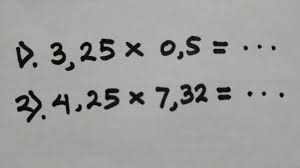 1). 3,25 × 0,5 = ...
2). 4,25 × 7,32 = ...